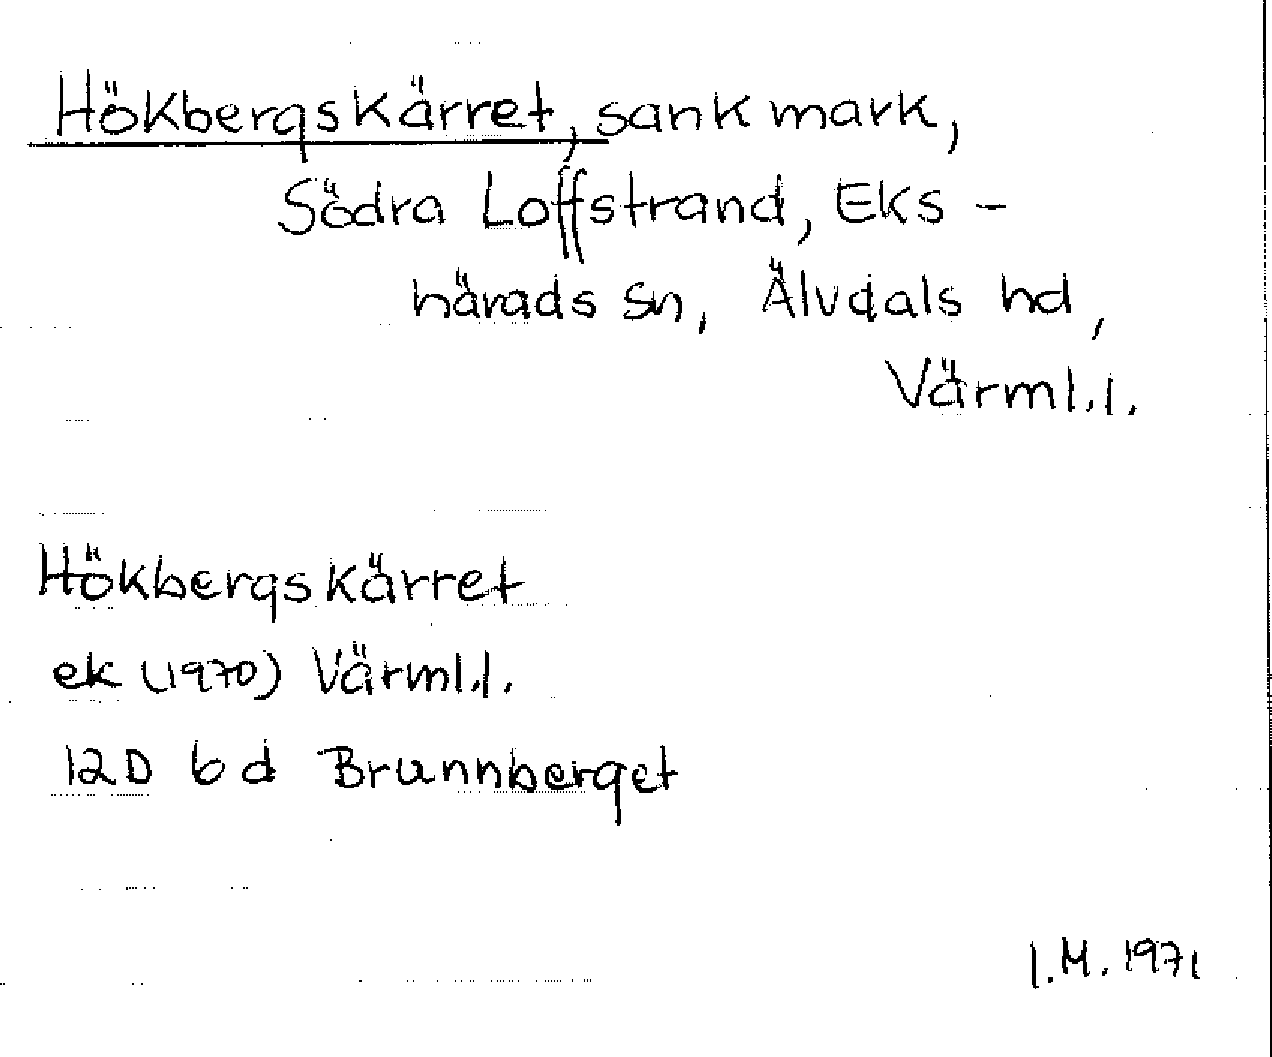 Hökbergskärret, sank mark,
Södra Loffstrand, Eks-
härads sn, Älvdals hd,
Värml.l.
Hökbergskärret
ek (1970) Värml.l.
12D 6d Brunnberget
I.M. 1971